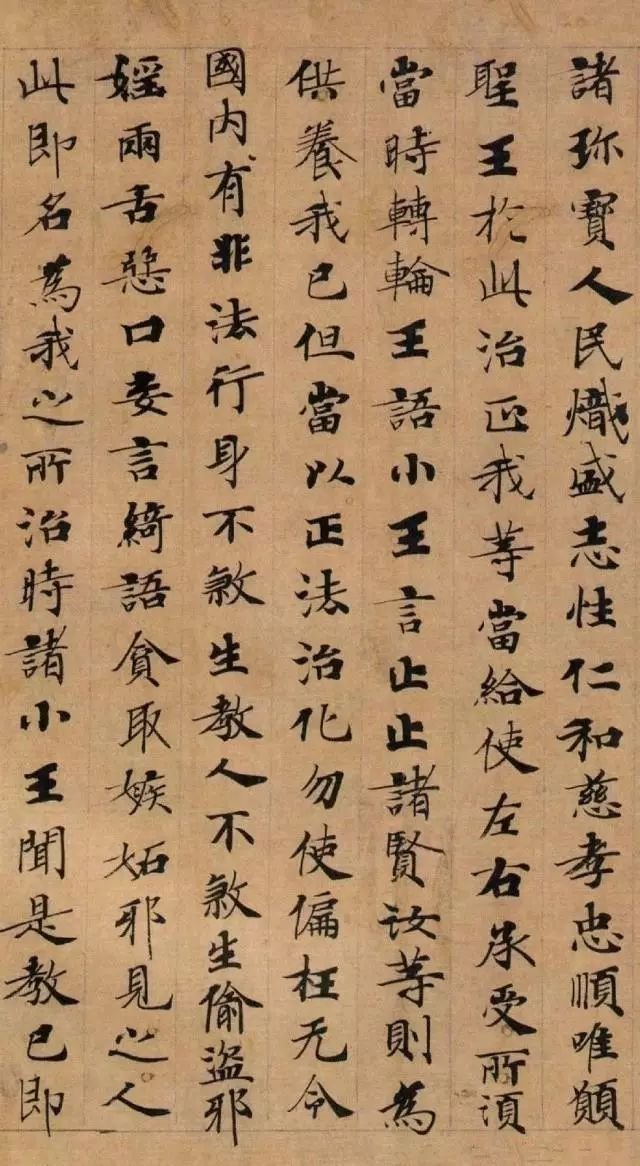 諸珎寳人民熾盛志性仁和慈孝忠順唯願
聖王於此治正我等當給使左右承受所須
當時轉輪王語小王言止止諸賢汝等則為
供養我已但當以正法治化勿使偏枉无令
國内有非法行身不煞生教人不煞生偷盜邪
婬兩舌惡口妄言綺語貪取嫉妬邪見之人
此即名為我之所治時諸小王聞是教已即